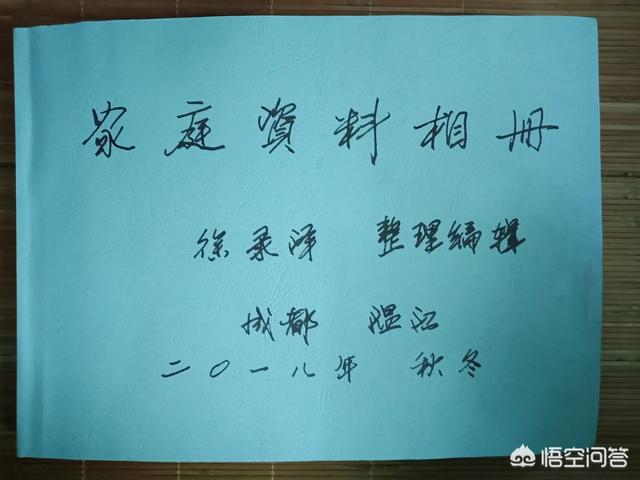 家庭資料相册
徐承泽 整理编辑
成都 温江
二〇一八年 秋冬
悟空问答